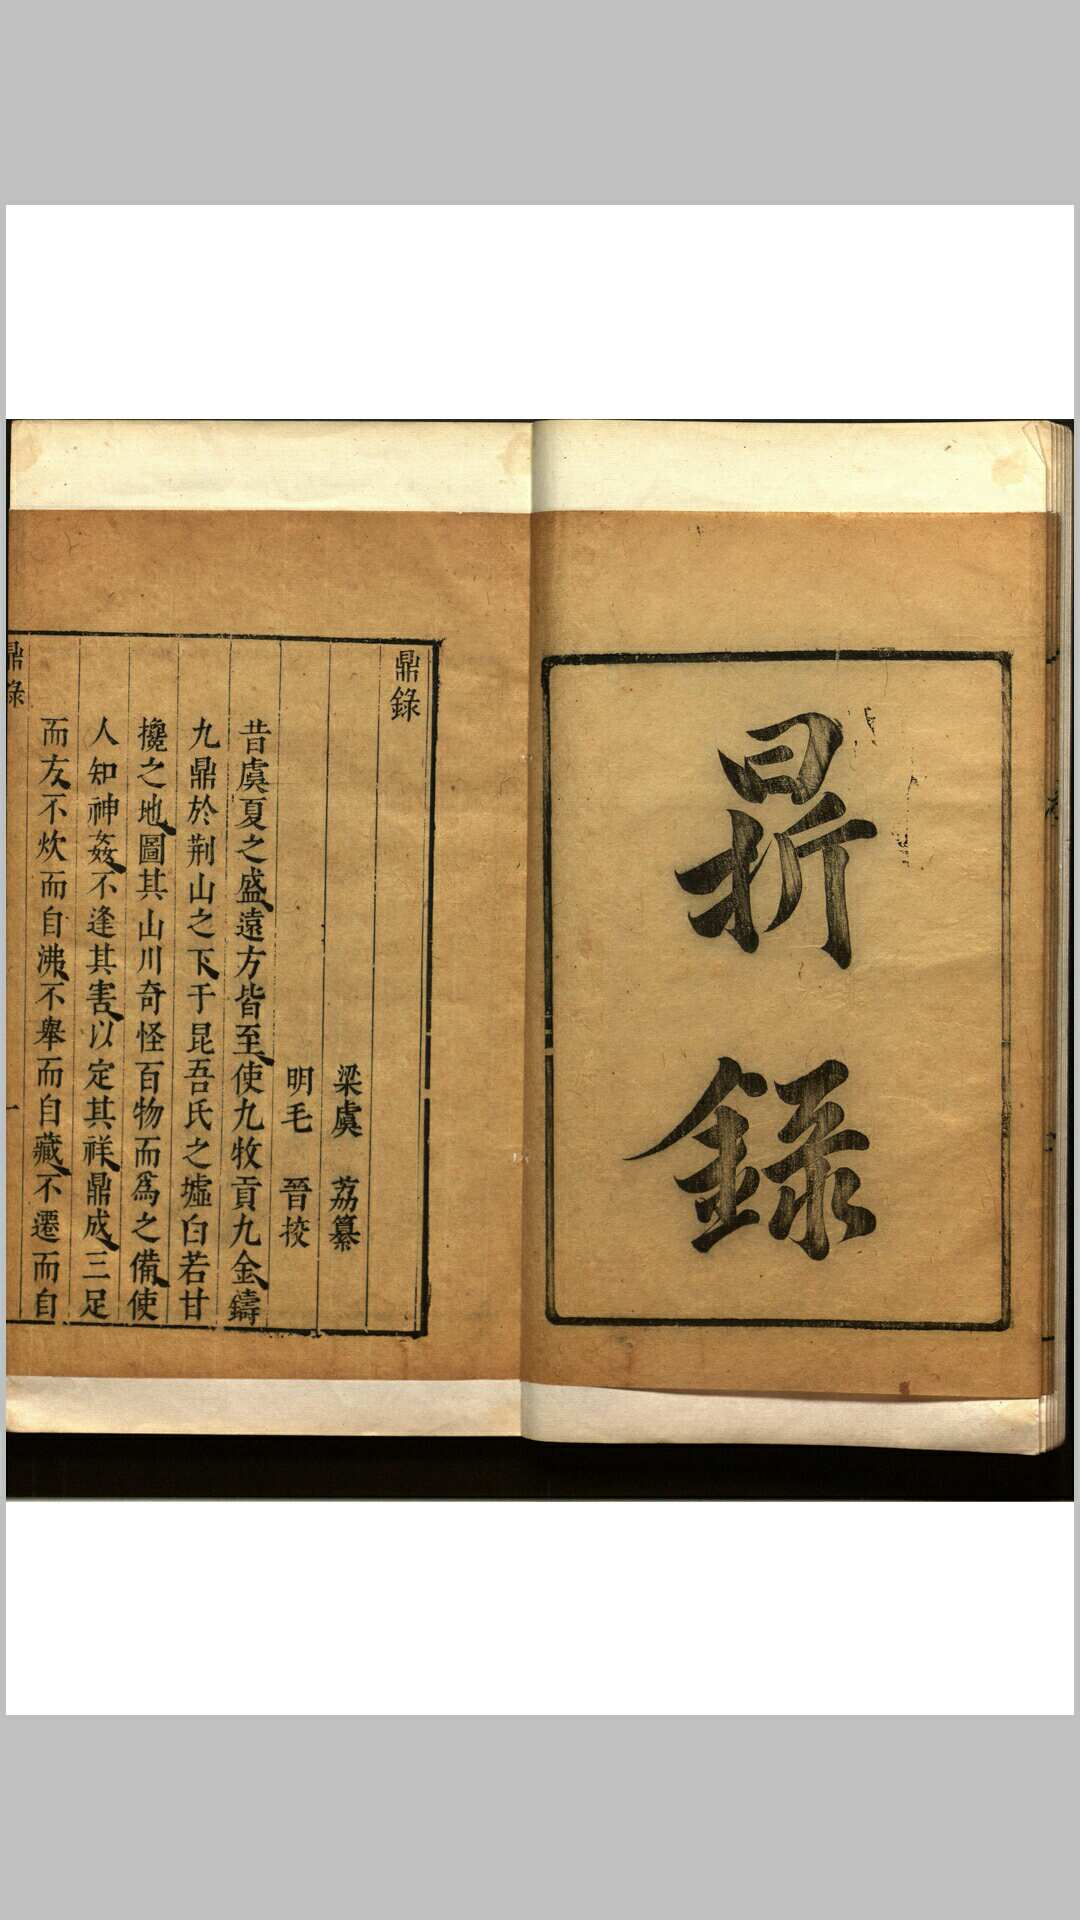 鼎録
鼎錄
梁虞 荔纂
明毛 晉挍
昔虞夏之盛遠方皆至使九牧貢九金鑄
九鼎於荆山之下于昆吾氏之墟白若甘
攙之地圖其山川奇怪百物而爲之備使
人知神姦不逢其害以定其祥鼎成三足
而方不炊而自沸不舉而自藏不遷而自
鼎錄
一